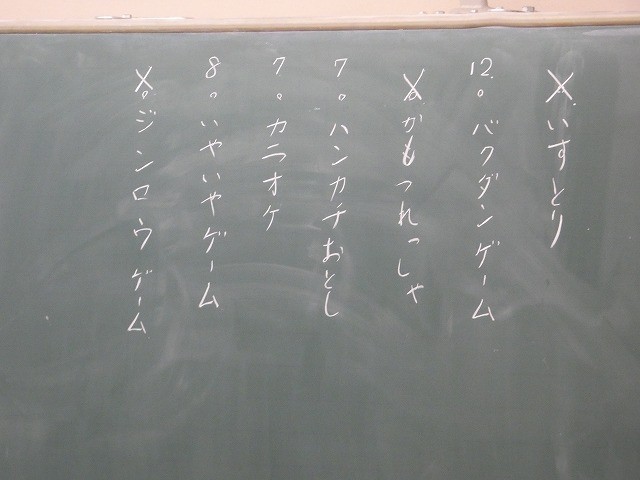 X。いすとり
12。バクダンゲーム
X。かもつれっしゃ
7。ハンカチおとし
7。カラオケ
8。いやいやゲーム
X。ジンロウゲーム